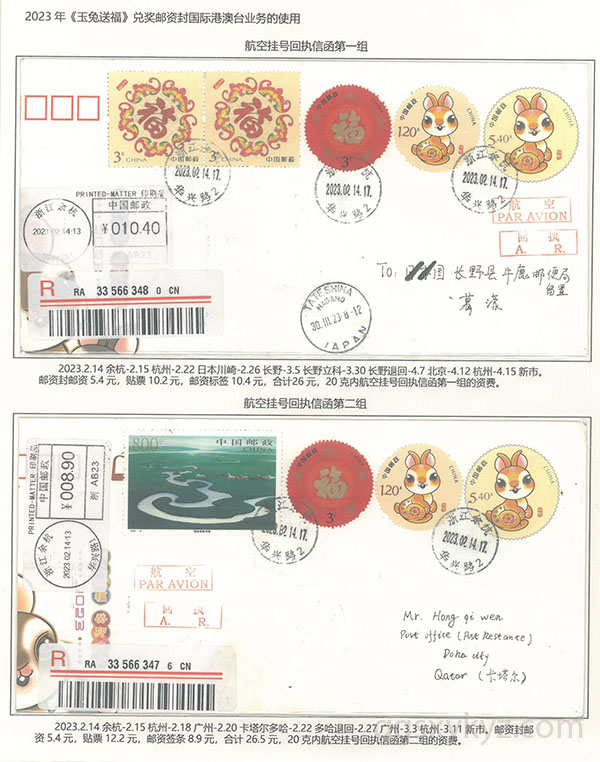 2023 年《玉兔送福》兑奖邮资封国际港澳台业务的使用
航空挂号回执信函第一组
福
福
3元 CHINA 中国邮政
3元 CHINA 中国邮政
中国邮政
福
3元
中国邮政
CHINA
120分
中国邮政
CHINA
5.40元
浙江余杭
2023.02.14.17.
华兴路2
2023.02.14.17.
华兴路2
浙江余杭
2023.02.14.17.
华兴路2
PRINTED-MATTER 印刷品
浙江余杭
2023.02.14-13
中国邮政
¥010.40
AB23
航 空
PAR AVION
回 执
A. R.
R RA 33 566 348 0 CN
TATESHINA
NAGANO
30.III.23-8-12
JAPAN
To: 国 长野县 牛鹿邮便局
留置
2023.2.14 余杭-2.15 杭州-2.22 日本川崎-2.26 长野-3.5 长野立科-3.30 长野退回-4.7 北京-4.12 杭州-4.15 新市。
邮资封邮资 5.4 元，贴票 10.2 元，邮资标签 10.4 元，合计26 元，20 克内航空挂号回执信函第一组的资费。
航空挂号回执信函第二组
PRINTED-MATTER 印刷品
中国邮政
¥008.90
浙 AB23
浙江余杭
2023.02.14-13
华兴路1
800分
中国邮政
CHINA
中国邮政
福
3元
中国邮政
CHINA
120分
中国邮政
CHINA
5.40元
2023.02.14.17.
华兴路2
浙江余杭
2023.02.14.17.
华兴路2
航 空
PAR AVION
回 执
A. R.
2023
Mr. Hong qi wen
Post office (Post Restance)
Doha city
Qatar (卡塔尔)
R RA 33 566 347 6 CN
2023.2.14 余杭-2.15 杭州-2.18 广州-2.20 卡塔尔多哈-2.22 多哈退回-2.27 广州-3.3 杭州-3.11 新市。邮资封邮
资 5.4 元，贴票 12.2 元，邮资签条 8.9 元，合计 26.5 元，20 克内航空挂号回执信函第二组的资费。